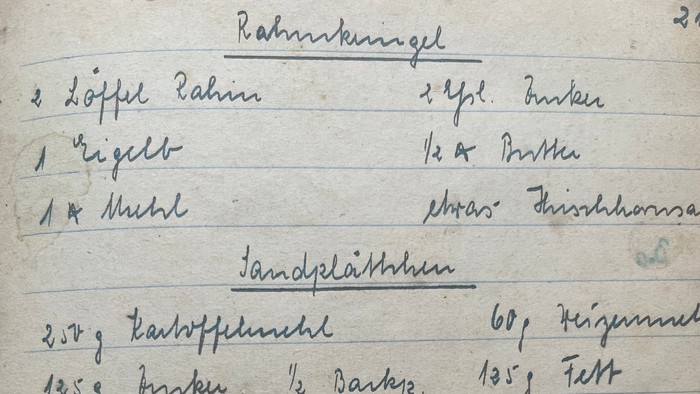 Rahmkringel
2 Löffel Rahm 2 Eßl. Zucker
1 Eigelb 1/2 ℔ Butter
1 ℔ Mehl etwas Hirschhornsa
Sandplätzchen
250 g Kartoffelmehl 60 g Weizenmeh
125 g Zucker 1/2 Backp. 125 g Fett